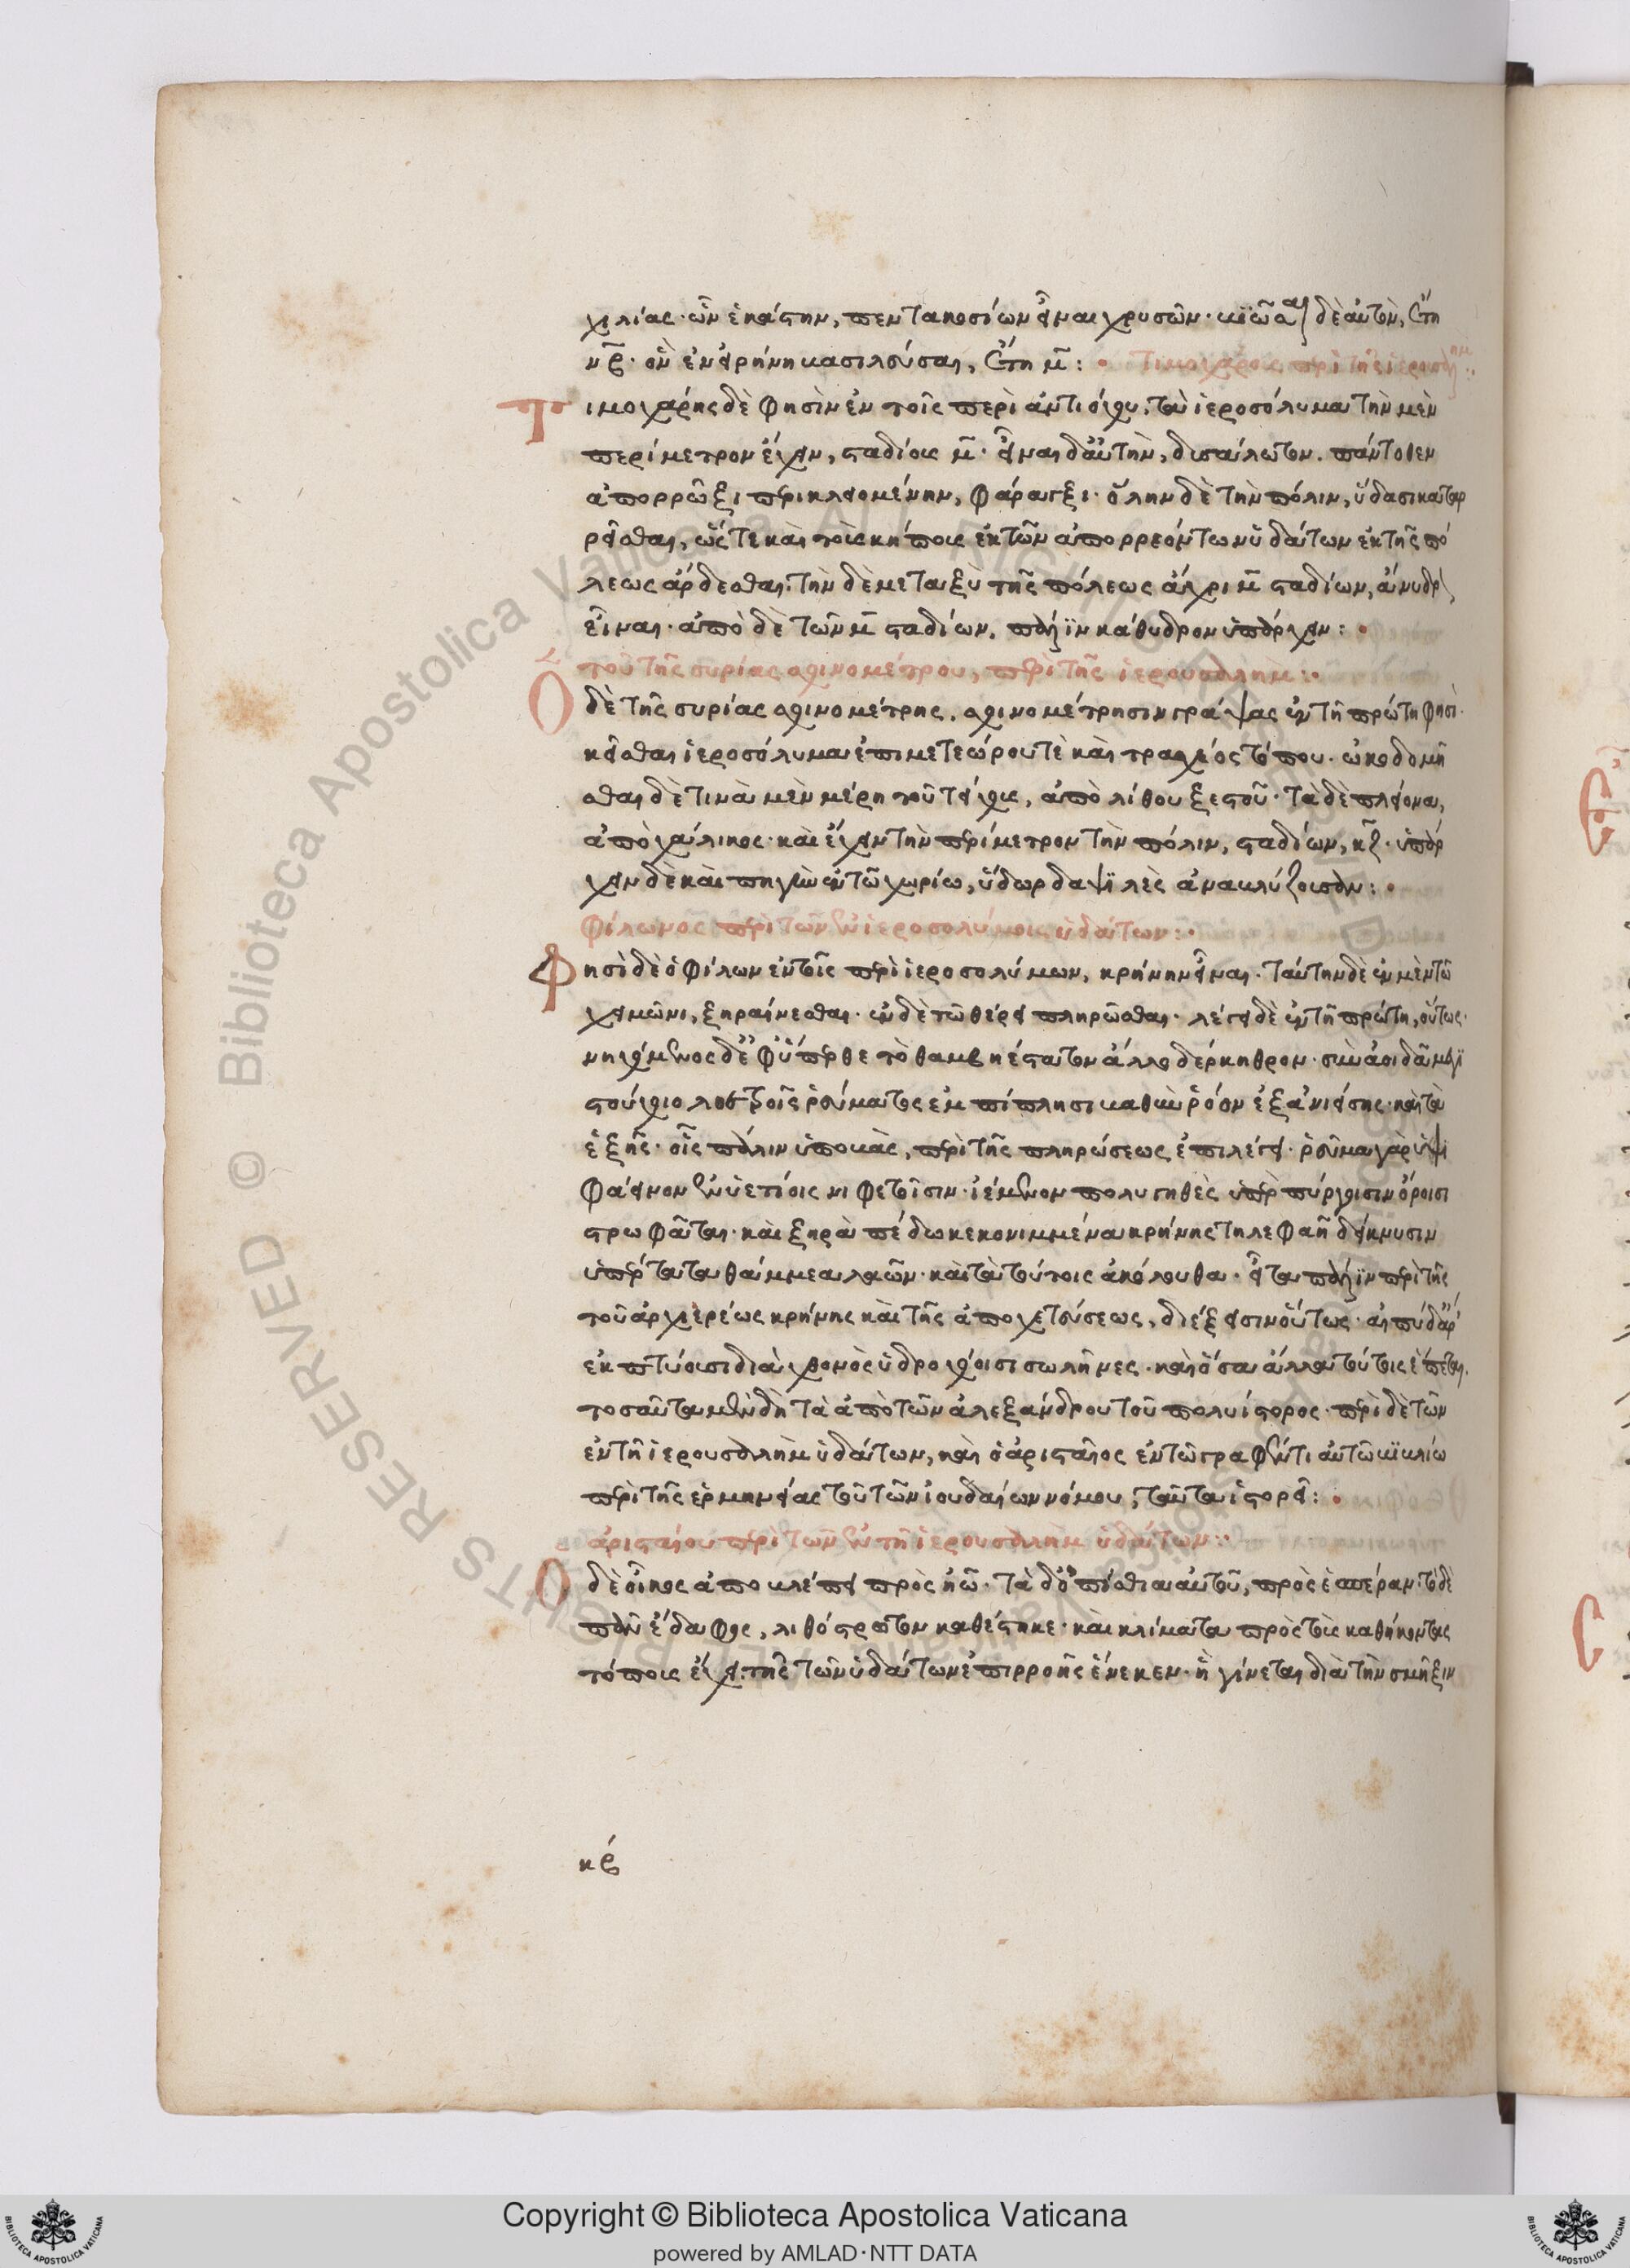 χιλίας· ὧν ἑκάστην, πεντακοσίων εἶναι χρυσῶν· βιῶσαι δὲ αὐτὸν, ἔτη
νβ· ὧν ἐν εἰρήνη βασιλεῦσαι, ἔτη μ:· Τιμοχάρους περὶ τῆς ἱερουσαλήμ:·
Τιμοχάρης δὲ φησὶν ἐν τοῖς περὶ ἀντιόχου, τὰ ἱεροσόλυμα τὴν μὲν
περίμετρον ἔχειν, σταδίους μ· εἶναι δ' αὐτὴν, δυσάλωτον. πάντοθεν
ἀπορρῶξι περικλειομένην, φάραγξι· ὅλην δὲ τὴν πόλιν, ὕδασι καταρ
ρεῖσθαι, ὥστε καὶ τοὺς κήπους ἐκ τῶν ἀπορρεόντων ὑδάτων ἐκ τῆς πό
λεως ἄρδεσθαι. τὴν δὲ μεταξὺ τῆς πόλεως ἄχρι μ σταδίων, ἄνυδρον
εἶναι· ἀπὸ δὲ τῶν μ σταδίων, πάλιν κάθυδρον ὑπάρχειν:·
τοῦ τῆς συρίας σχινομέτρου, περὶ τῆς ἱερουσαλήμ:·
Ὁ δὲ τῆς συρίας σχινομέτρης, σχινομέτρησιν γράψας ἐν τῇ πρώτη φησὶ·
κεῖσθαι ἱεροσόλυμα ἐπὶ μετεώρου τὲ καὶ τραχέος τόπου· ὠκοδομῆ
σθαι δὲ τινὰ μὲν μέρη τοῦ τείχους, ἀπὸ λίθου ξεστοῦ· τὰ δὲ πλείονα,
ἀπὸ χάλικος· καὶ ἔχειν τὴν περίμετρον τὴν πόλιν, σταδίων, κζ· ὑπάρ
χειν δὲ καὶ πηγὴν ἐν τῶ χωρίω, ὕδωρ δαψιλὲς ἀναβλύζουσαν:·
φίλωνος περὶ τῶν ἐν ἱεροσολύμοις ὑδάτων:·
Φησὶ δὲ ὁ φίλων ἐν τοῖς περὶ ἱεροσολύμων, κρήνην εἶναι· ταύτην δὲ ἐν μὲν τῶ
χειμῶνι, ξηραίνεσθαι· ἐν δὲ τῶ θέρει πληροῦσθαι· λέγει δὲ ἐν τῇ πρώτη, οὕτως·
νηχόμενος δ' ἐφύπερθε τὸ θαμβηέστατον ἄλλο δέρκηθρον· σὺν ἀοιδᾶ μεγι
στούχοιο λοετροῖς ῥεύματος ἐμπίπλησι βαθὺν ῥόον ἐξανιείσης· καὶ τὰ
ἑξῆς· οἷς πάλιν ὑποβὰς, περὶ τῆς πληρώσεως ἐπιλέγει· ῥεῦμα γὰρ ὑψι
φάεινον ἐν ὑετίοις νιφετοῖσιν· ἱέμενον πολυγηθὲς ὑπὲρ πύργοισιν ὄροισι
στρωφᾶται· καὶ ξηρὰ πέδω κεκονιμμένα κρήνης τηλεφαῆ δείκνυσιν
ὑπέρτατα θάμμεα λαῶν· καὶ τὰ τούτοις ἀκόλουθα· εἶτα πάλιν περὶ τῆς
τοῦ ἀρχιερέως κρήνης καὶ τῆς ἀποχετεύσεως, διέξεισιν οὕτως· αἰπὺ δ' ἄρ'
ἐκπτύουσι διὰ χθονὸς ὑδροχόοισι σωλῆνες· καὶ ὅσα ἄλλα τούτοις ἕπεται.
τοσαῦτα μὲν δὴ τὰ ἀπὸ τῶν ἀλεξάνδρου τοῦ πολυίστορος· περὶ δὲ τῶν
ἐν τῇ ἱερουσαλὴμ ὑδάτων, καὶ ὁ ἀρισταῖος ἐν τῶ γραφέντι αὐτῶ βιβλίω
περὶ τῆς ἑρμηνείας τοῦ τῶν ἰουδαίων νόμου, ταῦτα ἱστορεῖ:·
ἀρισταίου περὶ τῶν ἐν τῇ ἱερουσαλὴμ ὑδάτων:·
Ὁ δὲ οἶκος ἀποβλέπει πρὸς ἠῶ· τὰ δ' ὀπίσθια αὐτοῦ, πρὸς ἑσπέραν· τὸ δὲ
πᾶν ἔδαφος, λιθόστρωτον καθέστηκε· καὶ κλίματα πρὸς τοὺς καθήκοντας
τόπους ἔχει. τῆς τῶν ὑδάτων ἐπιρροῆς ἕνεκεν· ἣ γίνεται διὰ τὴν σμῆξιν
κβ
Biblioteca Apostolica Vaticana
ALL RIGHTS RESERVED ©
Copyright © Biblioteca Apostolica Vaticana
powered by AMLAD·NTT DATA
BIBLIOTECA APOSTOLICA VATICANA
BIBLIOTECA APOSTOLICA VATICANA